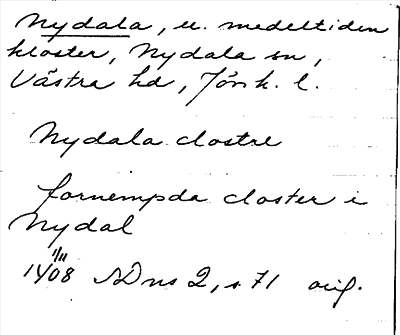 Nydala, u. medeltiden
kloster, Nydala sn,
Västra hd, Jönk. l.
Nydala clostre
fornempda closter i
Nydal
1/11
1408 SD ns 2, s. 71 orig.